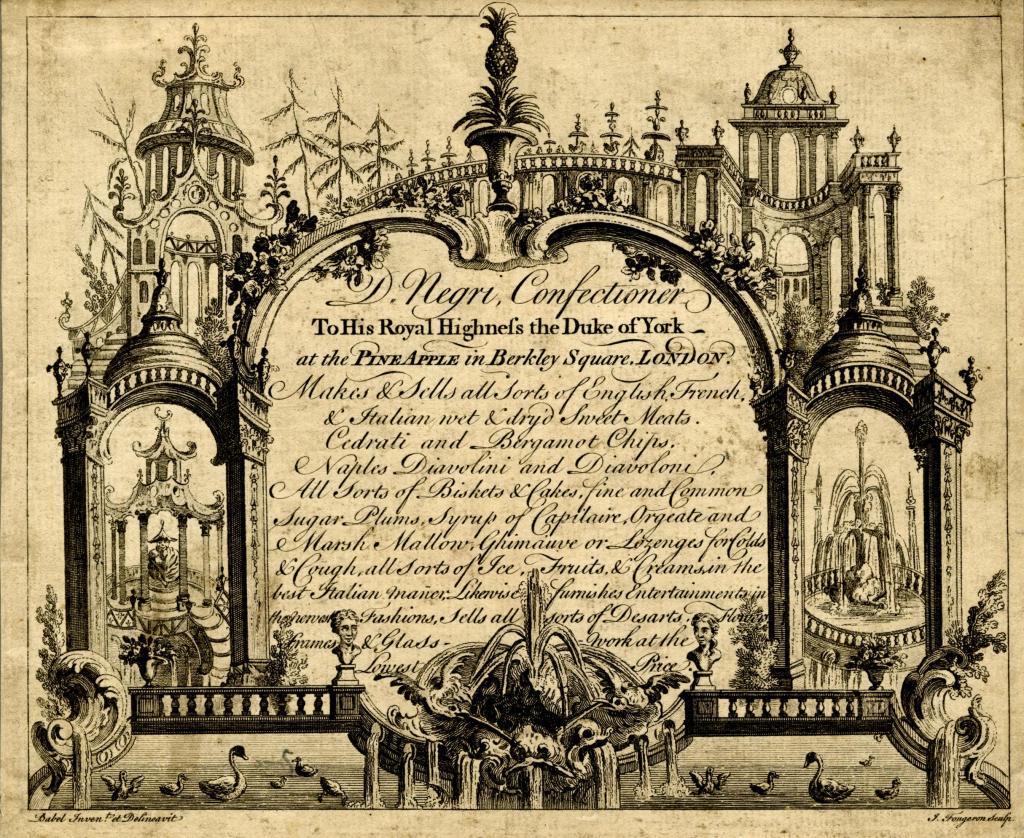 D. Negri, Confectioner
To His Royal Highneſs the Duke of York
at the PINE APPLE in Berkley Square, LONDON.
Makes & Sells all Sorts of English, French,
& Italian wet & dry'd Sweet Meats.
Cedrati and Bergamot Chips,
Naples Diavolini and Diavoloni,
All Sorts of Biskets & Cakes, fine and Common
Sugar Plums, Syrup of Capilaire, Orgeate and
Marsh Mallow, Ghimauve or Lozenges for Colds
& Cough, all Sorts of Ice, Fruits, & Creams, in the
best Italian mañer, Likewise furnishes Entertainments in
the newest Fashions, Sells all sorts of Desarts, Flower
frames & Glass-work at the
Lowest Price
Babel Inven.t et Delineavit
J. Fougeron Sculp.